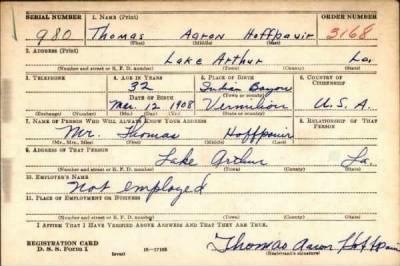 SERIAL NUMBER 1. NAME (Print) ORDER NUMBER
980 Thomas Aaron Hoffpauir 3168
(First) (Middle) (Last)
2. ADDRESS (Print)
Lake Arthur La.
(Number and street or R. F. D. number) (Town) (County) (State)
3. TELEPHONE 4. AGE IN YEARS 5. PLACE OF BIRTH 6. COUNTRY OF CITIZENSHIP
32 Indian Bayou
DATE OF BIRTH (Town or county)
Mar. 12 1908 Vermilion U.S.A.
(Exchange) (Number) (Mo.) (Day) (Yr.) (State or country)
7. NAME OF PERSON WHO WILL ALWAYS KNOW YOUR ADDRESS 8. RELATIONSHIP OF THAT PERSON
Mr. Thomas Hoffpauir
(Mr., Mrs., Miss) (First) (Middle) (Last)
9. ADDRESS OF THAT PERSON
Lake Arthur La.
(Number and street or R. F. D. number) (Town) (County) (State)
10. EMPLOYER'S NAME
Not employed
11. PLACE OF EMPLOYMENT OR BUSINESS
(Number and street or R. F. D. number) (Town) (County) (State)
I AFFIRM THAT I HAVE VERIFIED ABOVE ANSWERS AND THAT THEY ARE TRUE.
REGISTRATION CARD
D. S. S. Form 1 (over) 16—17105 Thomas Aaron Hoffpauir
(Registrant's signature)